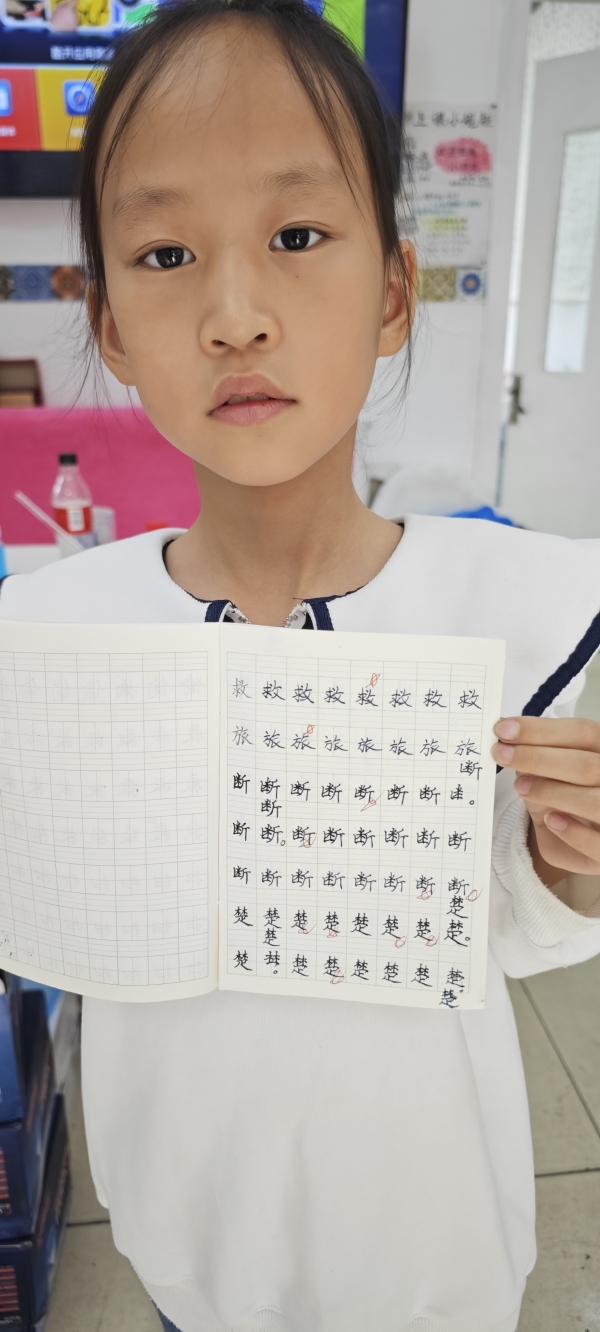 救 救 救 救 救 救 救 救
旅 旅 旅 旅 旅 旅 旅 旅
断
断 断 断 断 断 断 断
断
断 断。 断 断 断 断 断 断
断 断 断 断 断 断 断 断
楚
楚 楚 楚 楚 楚 楚 楚 楚。
楚
楚 楚 楚 楚 楚 楚 楚
楚